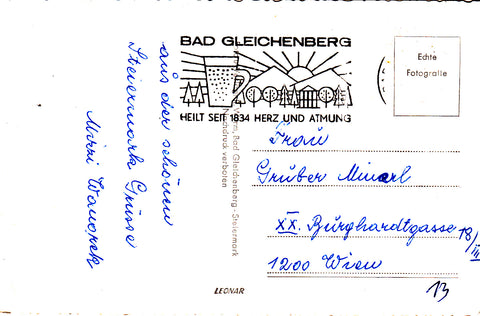 BAD GLEICHENBERG
HEILT SEIT 1834 HERZ UND ATMUNG
Echte
Fotografie
aus der schönen
Steiermark Grüsse
Mizzi
Bad Gleichenberg - Steiermark
Nachdruck verboten
Frau
Gruber
XX. Burghardtgasse 13/III
1200 Wien
13
LEONAR